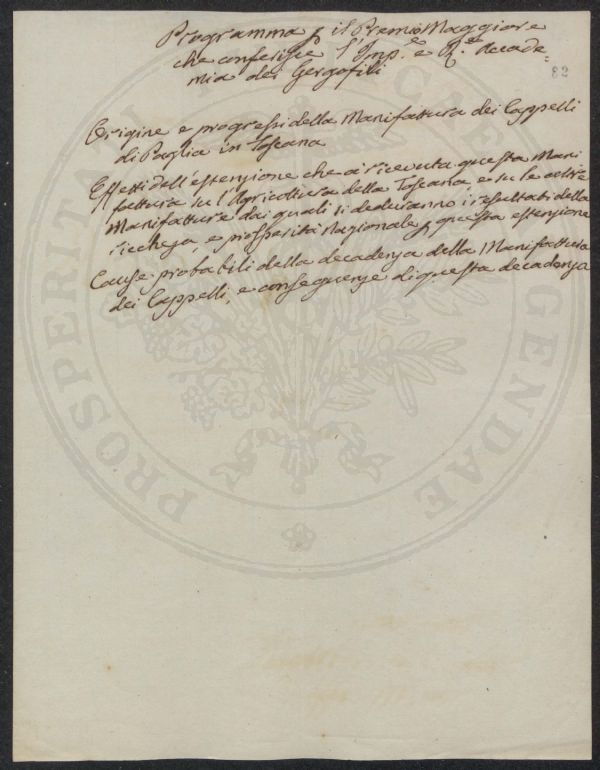 Programma p il Premio Maggiore
che conferisce l'Imp.e e R.e Accade=
mia dei Gergofili
82
Origine e progressi della Manifattura dei Cappelli
di Paglia in Toscana
Effetti dell'estenzione che à ricevuta questa Mani
fattura su l'Agricoltura della Toscana, e su le altre
Manifatture dai quali si deduranno i resultati della
riccheza, e prosperità Nazionale p questa estenzione
Cause probabili della decadenza della Manifattura
dei Cappelli, e conseguenze di questa decadenza
PROSPERITATI PUBLICAE AUGENDAE